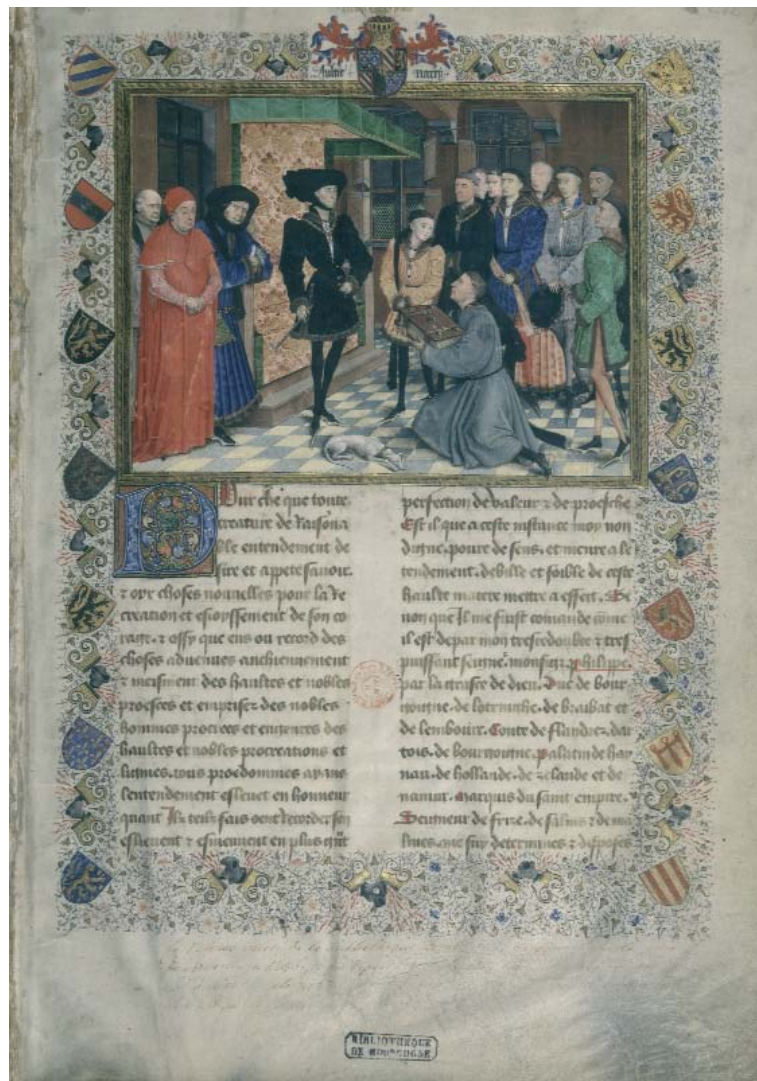 Aultre narey
Pour che que toute
creature de Raisona
ble entendement de
sire et appete sauoir.
⁊ oyr choses nouuelles pour la Re
creation et esioyssement de son co
rage. ⁊ ossy que ens ou record des
choses aduenues anchiennement
⁊ meisment des haultes et nobles
proesces et emprises des nobles
hommes procrees et engenres des
haultes et nobles procreations et
lignies. tous proedommes ayans
lentendement esleuet en honneur
quant Ilz telz fais oent Recorder sen
⁊ en plus grāt
perfection de valeur ⁊ de proesche
Est il que a ceste instance moy non
digne. poure de sens. et menre de lē
tendement. debille et foible de ceste
haulte matere mettre a effect. Se
non que Il me fuist comande come
il est depar mon tresredoubte ⁊ tres
puissant seignr monsigr phelippe.
par la grasce de dieu. Duc de bour
gouigne. de lotriniche. de braibat et
de lembourc. Conte de flandre. dar
tois. de bourgouigne. palatin de hay
nau. de hollande. de zelande et de
namur. Marquis du saint empire.
Seigneur de frize. de salins ⁊ de ma
lines. me suy determines ⁊ disposes
BIBLIOTHEQUE
DE BOURGOGNE